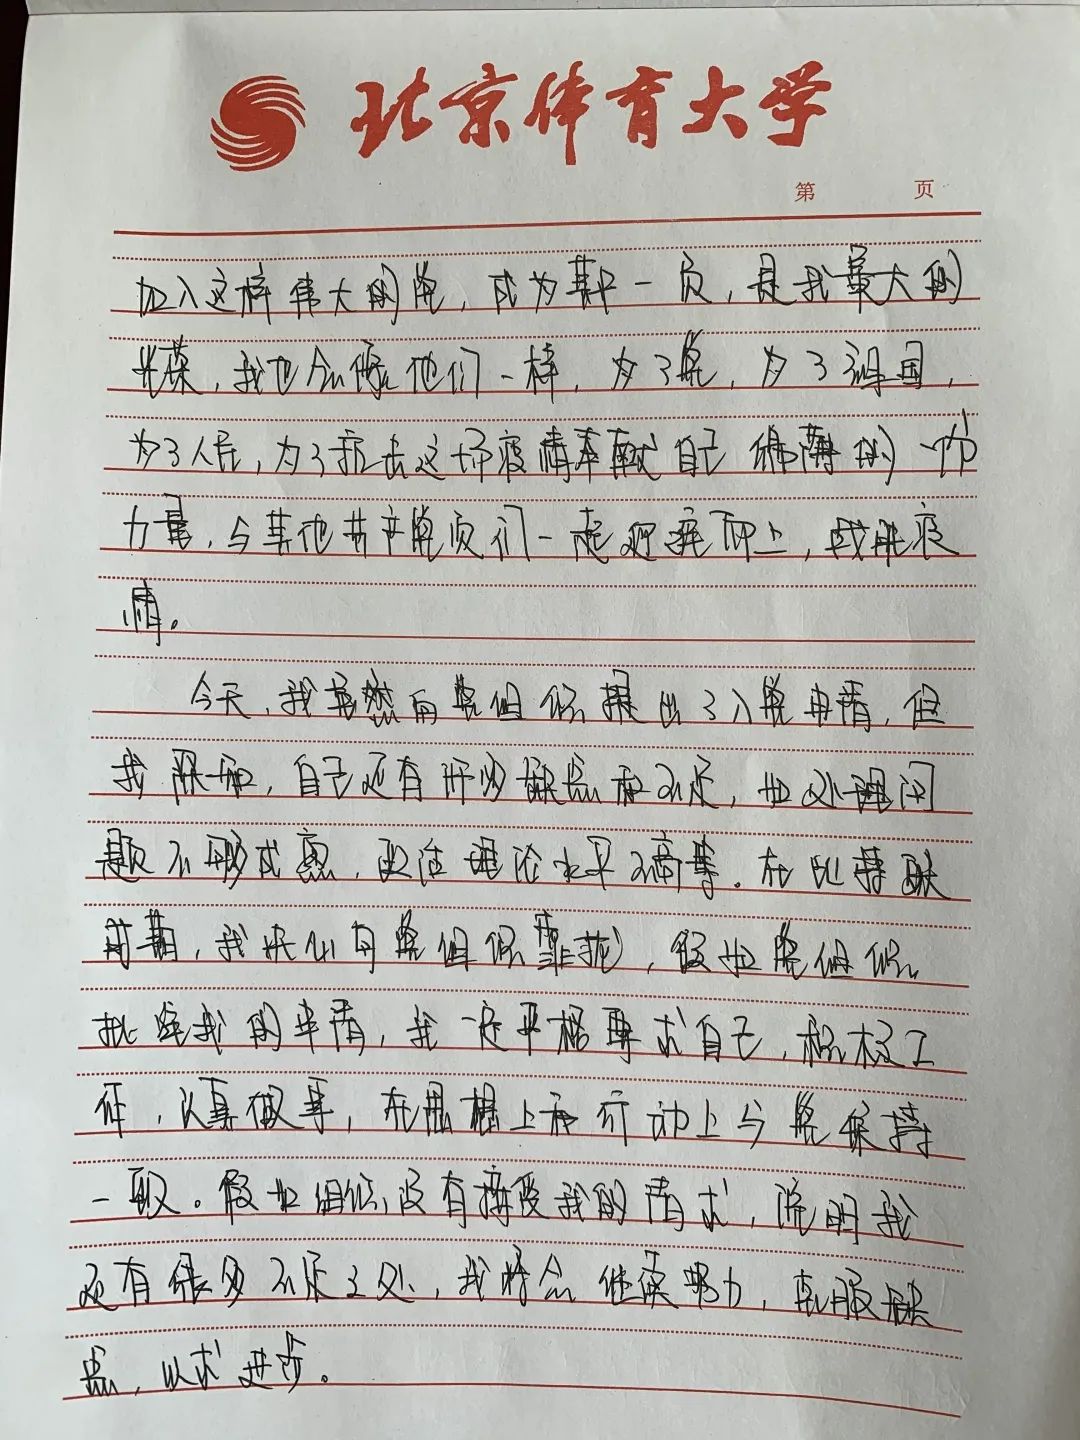 北京体育大学
第 页
加入这样伟大的党，成为其中一员，是我最大的
光荣，我也会像他们一样，为了党，为了祖国，
为了人民，为了抗击这场疫情奉献自己绵薄的一份
力量，与其他共产党员们一起迎难而上，战胜疫
情。
今天，我虽然向党组织提出了入党申请，但
我深知，自己还有许多缺点和不足，如处理问
题不够成熟，政治理论水平不高等。在此特殊
时期，我决心向党组织靠拢，假如党组织
批准我的申请，我一定严格要求自己，积极工
作，认真做事，在思想上和行动上与党保持
一致。假如组织没有接受我的请求，说明我
还有很多不足之处，我将会继续努力，克服缺
点，以求进步。